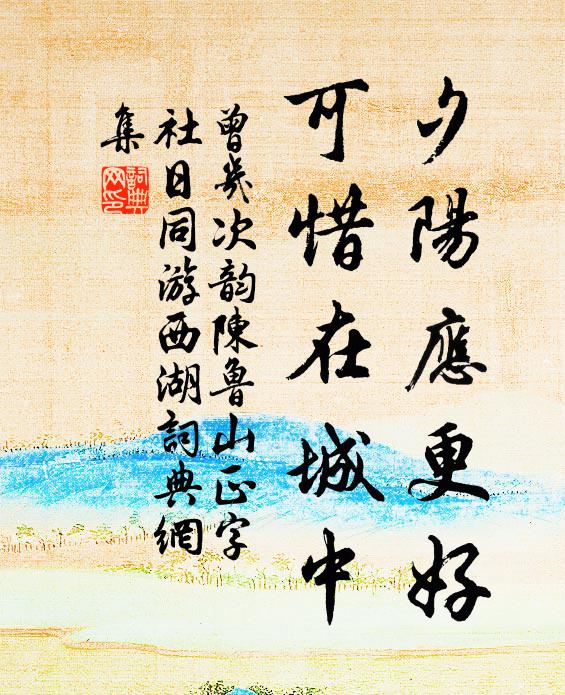 夕陽應更好
可惜在城中
曾幾次韵陳魯山正字
社日同游西湖詞典網
集
詞典
网印